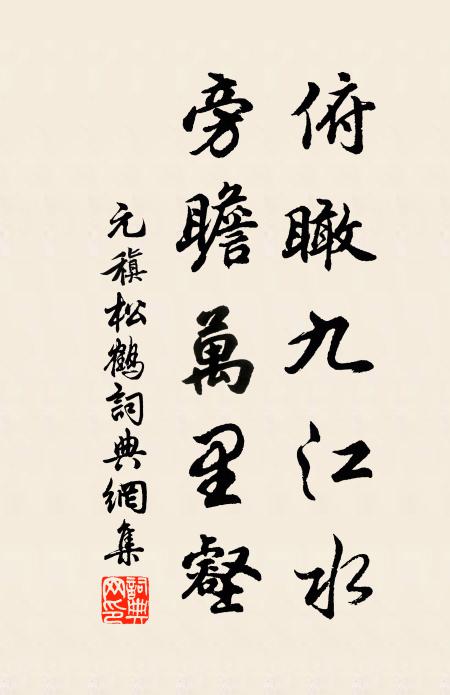 俯瞰九江水
旁瞻萬里壑
元稹松鶴詞典網集
詞典網印